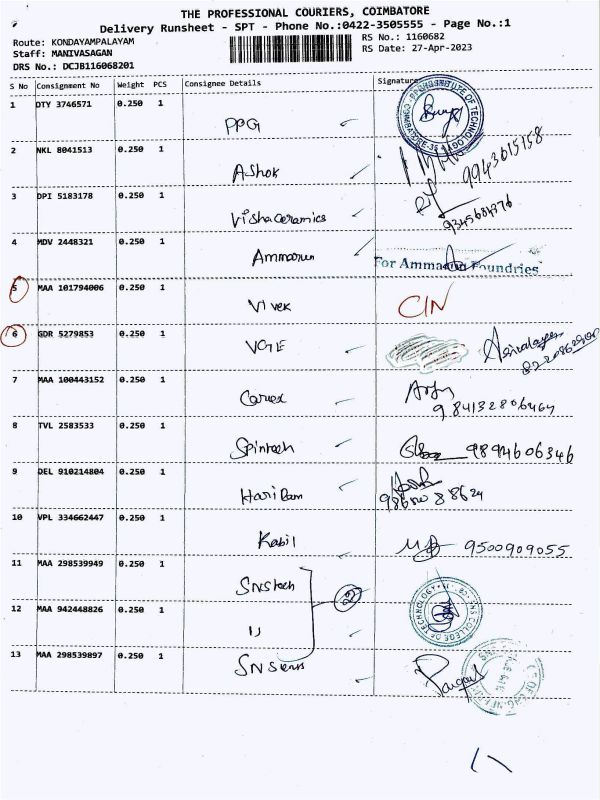 THE PROFESSIONAL COURIERS, COIMBATORE
Delivery Runsheet - SPT - Phone No.:0422-3505555 - Page No.:1
Route: KONDAYAMPALAYAM
RS No.: 1160682
Staff: MANIVASAGAN
RS Date: 27-Apr-2023
DRS No.: DCJB116068201
S No Consignment No Weight PCS Consignee Details Signature
1 DTY 3746571 0.250 1
PPG
2 NKL 8041513 0.250 1
Ashok 9943615158
3 DPI 5183178 0.250 1
Vishaceramics 9345684376
4 MDV 2448321 0.250 1
Ammarun For Ammarun Foundries
5 MAA 101794006 0.250 1
Vivek CIN
6 GDR 5279853 0.250 1
VGE
7 MAA 100443152 0.250 1
8 TVL 2583533 0.250 1
Spintech 9894606346
9 DEL 910214804 0.250 1
Hari Ram
10 VPL 334662447 0.250 1
Kabil 9500909055
11 MAA 298539949 0.250 1
SNS tech
2
12 MAA 942448826 0.250 1
13 MAA 298539897 0.250 1
SNS